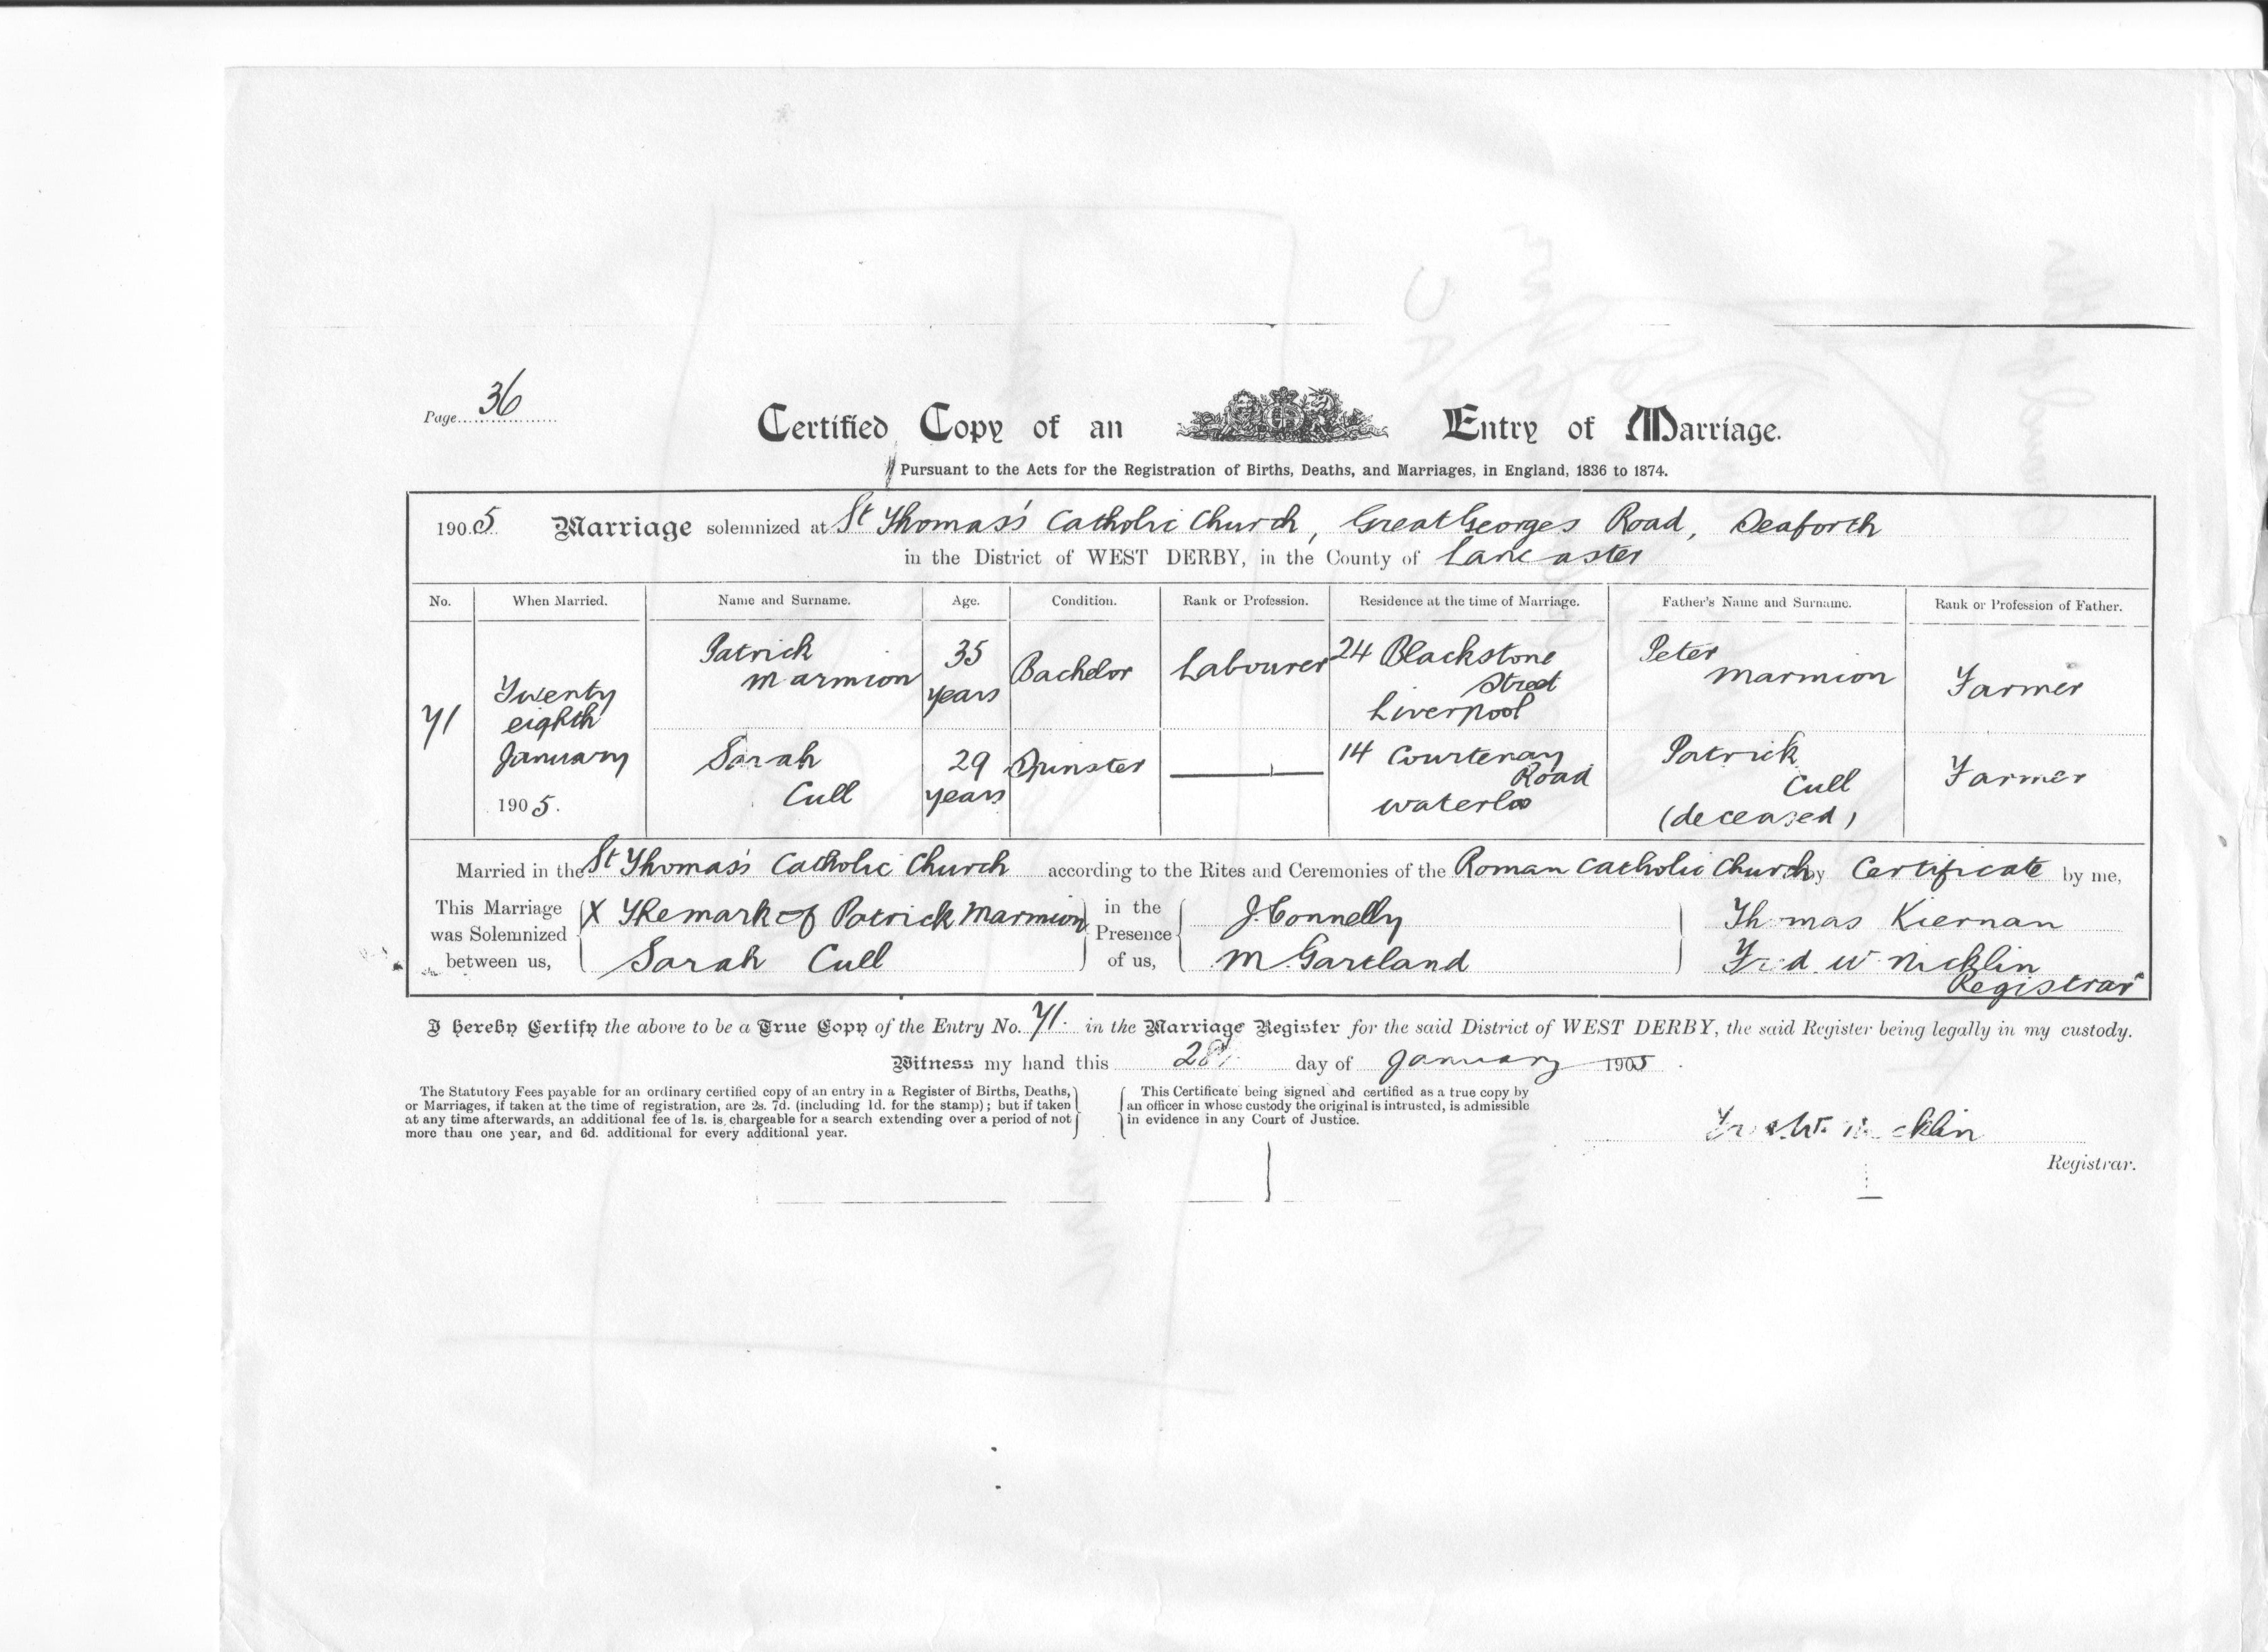 Page 36
Certified Copy of an Entry of Marriage.
Pursuant to the Acts for the Registration of Births, Deaths, and Marriages, in England, 1836 to 1874.
1905. Marriage solemnized at St Thomas's Catholic Church, Great Georges Road, Seaforth
in the District of WEST DERBY, in the County of Lancaster
No. When Married. Name and Surname. Age. Condition. Rank or Profession. Residence at the time of Marriage. Father's Name and Surname. Rank or Profession of Father.
71 Twenty eighth January 1905. Patrick Marmion 35 years Bachelor Labourer 24 Blackstone Street Liverpool Peter Marmion Farmer
Sarah Cull 29 years Spinster 14 Courtenay Road Waterloo Patrick Cull (deceased) Farmer
Married in the St Thomas's Catholic Church according to the Rites and Ceremonies of the Roman Catholic Church by Certificate by me,
This Marriage was Solemnized between us, X The mark of Patrick Marmion Sarah Cull in the Presence of us, J. Connelly M Gartland Thomas Kiernan Fred W. Nicklin Registrar
I hereby Certify the above to be a True Copy of the Entry No. 71. in the Marriage Register for the said District of WEST DERBY, the said Register being legally in my custody.
Witness my hand this 28th day of January 1905.
The Statutory Fees payable for an ordinary certified copy of an entry in a Register of Births, Deaths,
or Marriages, if taken at the time of registration, are 2s. 7d. (including 1d. for the stamp); but if taken
at any time afterwards, an additional fee of 1s. is chargeable for a search extending over a period of not
more than one year, and 6d. additional for every additional year.
This Certificate being signed and certified as a true copy by
an officer in whose custody the original is intrusted, is admissible
in evidence in any Court of Justice.
Fred W. Nicklin
Registrar.